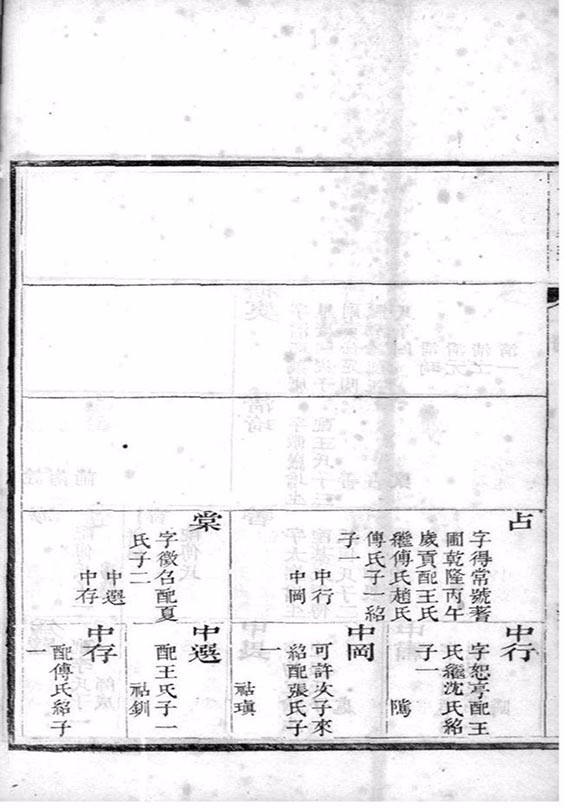 占
字得常號耆
圃乾隆丙午
歲貢配王氏
繼傅氏趙氏
傅氏子一紹
子一
中行
中岡
棠
字徵召配夏
氏子二
中選
中存
中行
字恕亭配王
氏繼沈氏紹
子一
中岡
可許次子來
紹配張氏子
一
祜瑱
中選
配王氏子一
祜釧
中存
配傅氏紹子
一